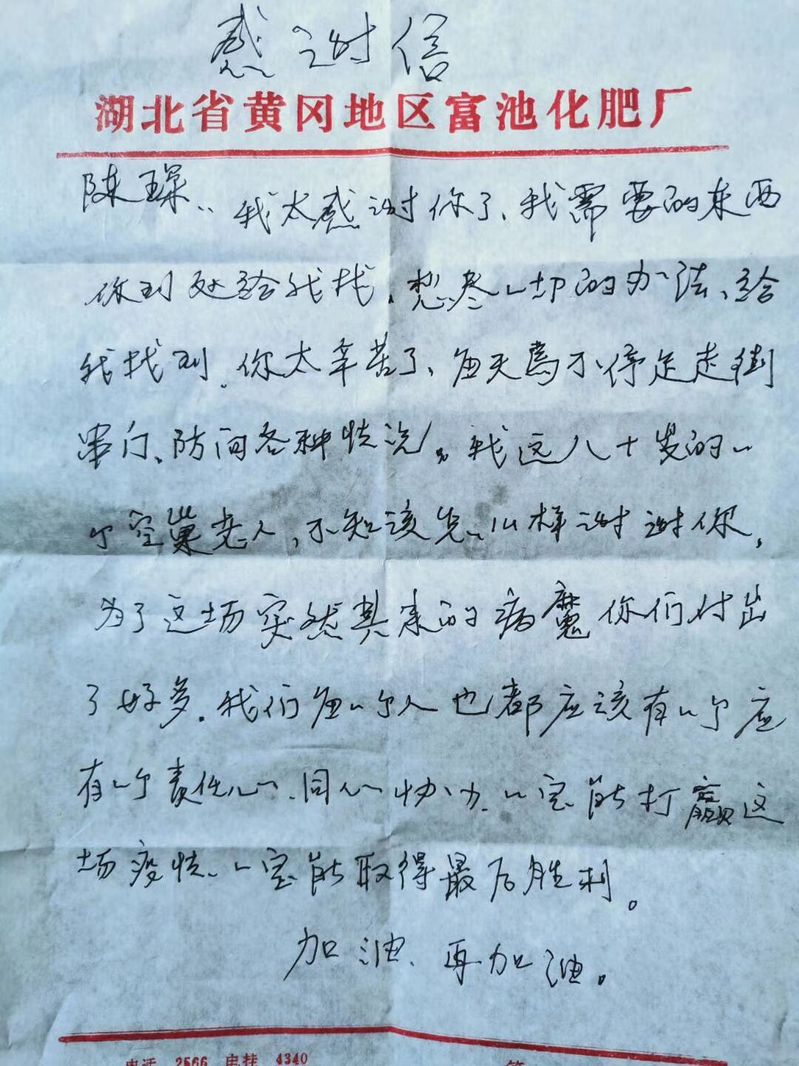 感谢信
湖北省黄冈地区富池化肥厂
陈琛：我太感谢你了、我需要的东西
你到处给我找，想尽一切的办法、给
我找到。你太辛苦了、每天马不停足走街
串门、防问各种情况。我这八十岁的一
个空巢老人，不知该怎么样谢谢你，
为了这场突然其来的病魔你们付出
了好多。我们每一个人也都应该有一个应
有一个责任心、同心协力、一定能打赢这
场疫情、一定能取得最后胜利。
加油、再加油。
电话 2566 电挂 4340